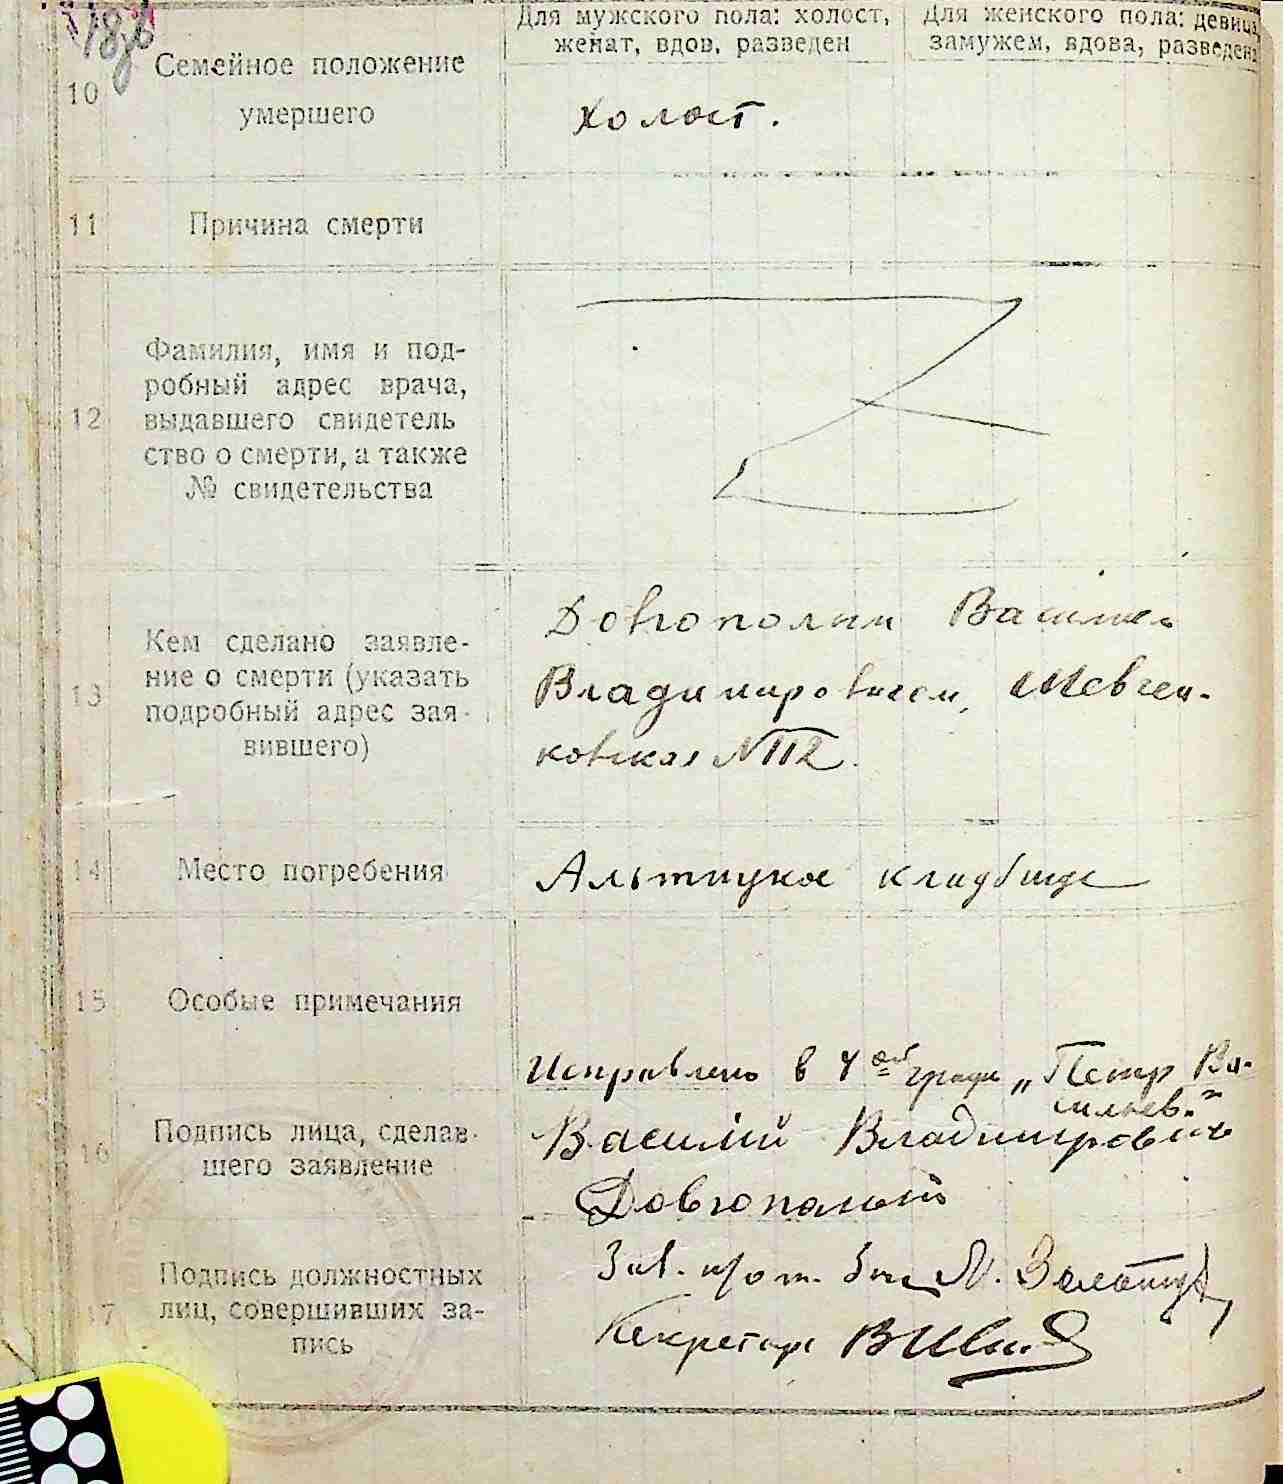 Для мужского пола: холост,
женат, вдов, разведен
Для женского пола: девица,
замужем, вдова, разведена
10
Семейное положение
умершего
холост.
11
Причина смерти
12
Фамилия, имя и под-
робный адрес врача,
выдавшего свидетель
ство о смерти, а также
№ свидетельства
13
Кем сделано заявле-
ние о смерти (указать
подробный адрес зая-
вившего)
Довгополым Василием
Владимировичем, Шевчен-
ковская №112.
14
Место погребения
кладбище
15
Особые примечания
Исправлено в 4ой графе „Петр Ва-
сильев."
16
Подпись лица, сделав-
шего заявление
Василий Владимирович
Довгополый
17
Подпись должностных
лиц, совершивших за-
пись
Зав.
Секретарь